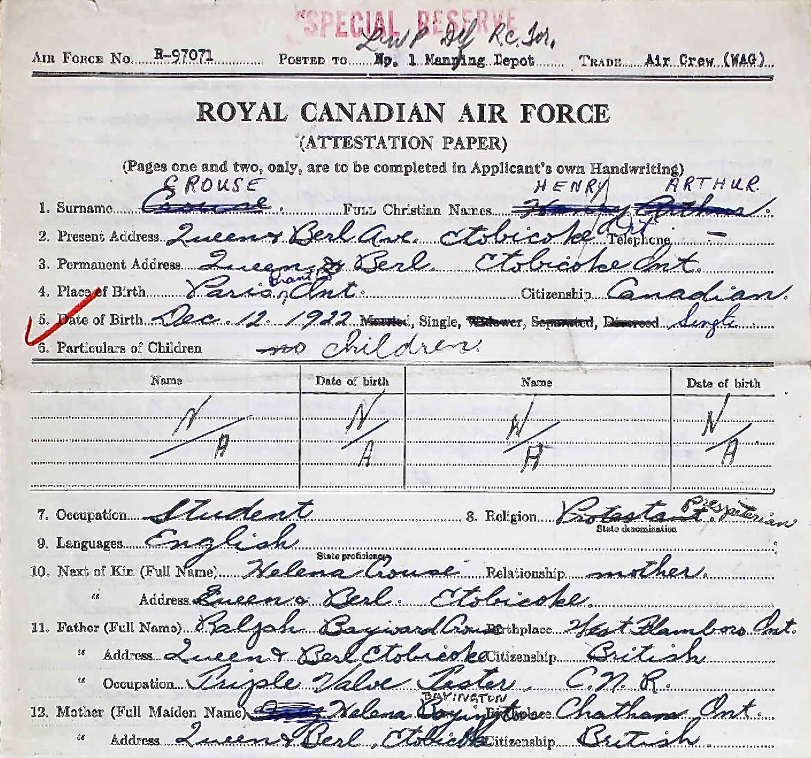 "SPECIAL RESERVE
AIR FORCE NO. R-97071 POSTED TO No. 1 Manning Depot TRADE Air Crew (WAG)
ROYAL CANADIAN AIR FORCE
(ATTESTATION PAPER)
(Pages one and two, only, are to be completed in Applicant's own Handwriting)
CROUSE HENRY ARTHUR.
1. Surname Crouse. FULL Christian Names Henry Arthur.
2. Present Address Queen & Berl Ave. Etobicoke Ont Telephone —
3. Permanent Address Queen & Berl Etobicoke Ont.
4. Place of Birth Paris, Brant Ont. Citizenship Canadian.
5. Date of Birth Dec. 12. 1922 Married, Single, Widower, Separated, Divorced Single
6. Particulars of Children no children.
Name Date of birth Name Date of birth
N/A N/A N/A N/A
7. Occupation Student 8. Religion Protestant. Presbyterian
State denomination
9. Languages English
State proficiency
10. Next of Kin (Full Name) Helena Crouse Relationship mother.
" Address Queen & Berl. Etobicoke.
11. Father (Full Name) Ralph Bayward Crouse Birthplace West Flamboro Ont.
" Address Queen & Berl Etobicoke Citizenship British
" Occupation Triple Valve Tester, C.N.R.
BAYINGTON
12. Mother (Full Maiden Name) Helena Birthplace Chatham Ont.
" Address Queen & Berl, Etobicoke Citizenship British